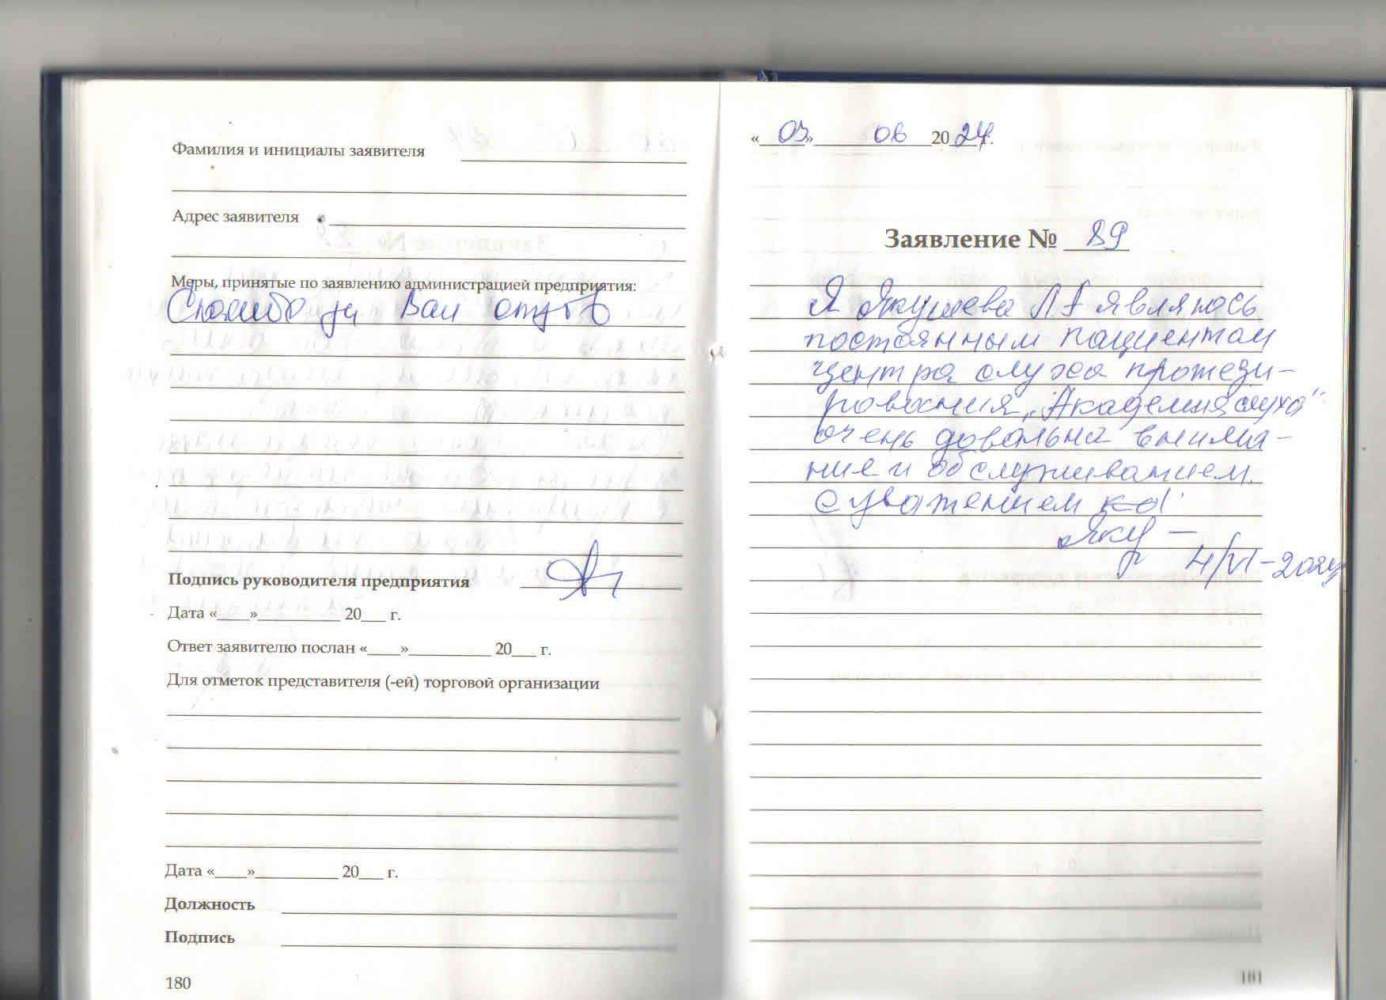 Фамилия и инициалы заявителя
Адрес заявителя
Меры, принятые по заявлению администрацией предприятия:
Спасибо за Ваш отзыв
Подпись руководителя предприятия
Дата «____»__________ 20___ г.
Ответ заявителю послан «____»__________ 20___ г.
Для отметок представителя (-ей) торговой организации
Дата «____»__________ 20___ г.
Должность
Подпись
180
«03» 06 2024г.
Заявление № 89
Я Якушева Л.А являюсь
постоянным пациентом
центра слуха протези-
рования „Академия слуха"
очень довольна внима-
ние и обслуживанием.
с уважением
4/VI-2024
181